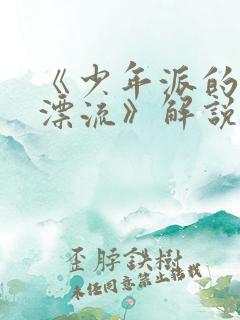 《少年派的
漂流》解說
歪脖鉄樹
未經同意禁止轉載